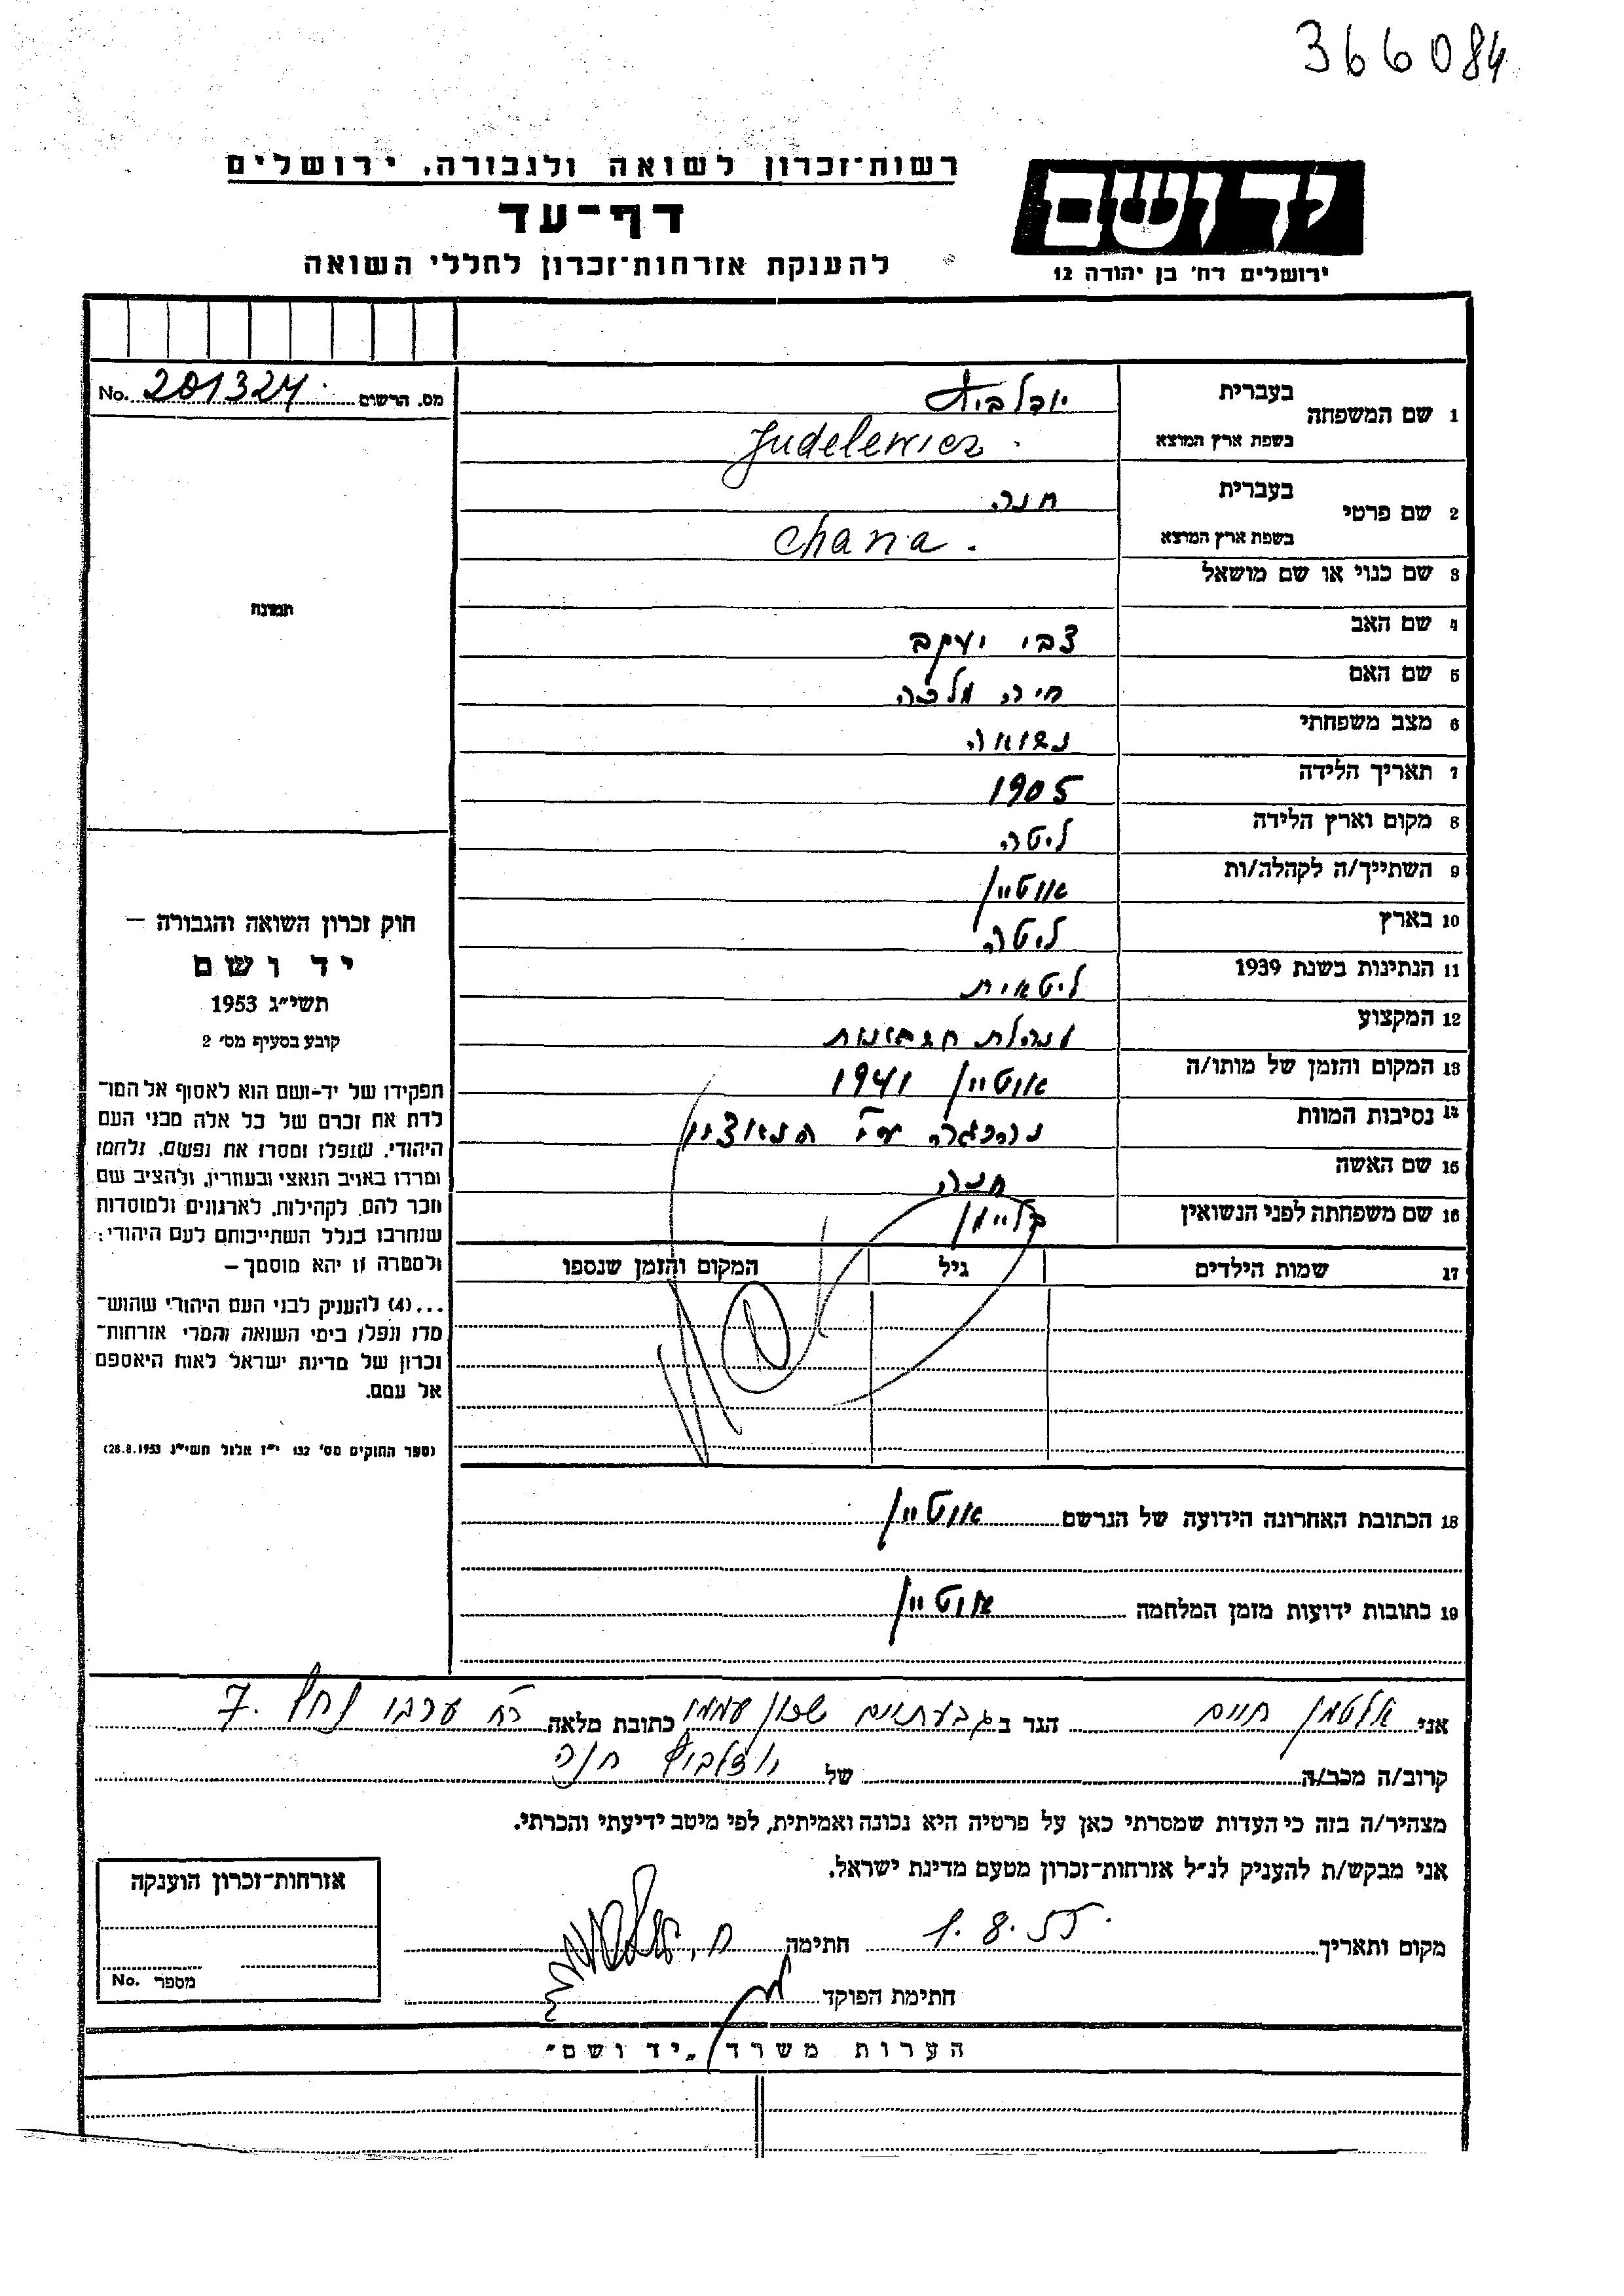 366084
רשות־זכרון לשואה ולגבורה, ירושלים
יד ושם
דף־עד
להענקת אזרחות־זכרון לחללי השואה
ירושלים רח׳ בן יהודה 12
מס. הרשום 201324 No.
1 שם המשפחה
בעברית יודלביץ
בשפת ארץ המוצא Judelewicz
2 שם פרטי
בעברית חנה
בשפת ארץ המוצא Chana
3 שם כנוי או שם מושאל
4 שם האב צבי יעקב
5 שם האם חיה מלכה
6 מצב משפחתי נשואה
7 תאריך הלידה 1905
8 מקום וארץ הלידה ליטה
9 השתייך/ה לקהלה/ות אוטיין
10 בארץ ליטה
11 הנתינות בשנת 1939 ליטאית
12 המקצוע מנהלת חשבונות
13 המקום והזמן של מותו/ה אוטיין 1941
14 נסיבות המוות נהרגה ע״י הנאצים
15 שם האשה חנה
16 שם משפחתה לפני הנשואין
17 שמות הילדים גיל המקום והזמן שנספו
תמונה
חוק זכרון השואה והגבורה –
יד ושם
תשי״ג 1953
קובע בסעיף מס׳ 2
תפקידו של יד־ושם הוא לאסוף אל המו־
לדת את זכרם של כל אלה מבני העם
היהודי, שנפלו ומסרו את נפשם, נלחמו
ומרדו באויב הנאצי ובעוזריו, ולהציב שם
וזכר להם, לקהילות, לארגונים ולמוסדות
שנחרבו בגלל השתייכותם לעם היהודי;
ולמטרה זו יהא מוסמך –
...(4) להעניק לבני העם היהודי שהוש־
מדו ונפלו בימי השואה והמרי אזרחות־
זכרון של מדינת ישראל לאות היאספם
אל עמם.
(ספר החוקים מס׳ 132 י״ז אלול תשי״ג 28.8.1953)
18 הכתובת האחרונה הידועה של הנרשם אוטיין
19 כתובות ידועות מזמן המלחמה אוטיין
אני אלטמן חיים הגר ב גבעתיים שכון עממי כתובת מלאה רח׳ ערבי נחל 7.
קרוב/ה מכר/ה של יודלביץ חנה
מצהיר/ה בזה כי העדות שמסרתי כאן על פרטיה היא נכונה ואמיתית, לפי מיטב ידיעתי והכרתי.
אני מבקש/ת להעניק לנ״ל אזרחות־זכרון מטעם מדינת ישראל.
מקום ותאריך 1.8.55 חתימה
חתימת הפוקד
אזרחות־זכרון הוענקה
מספר No.
הערות משרד „יד ושם״